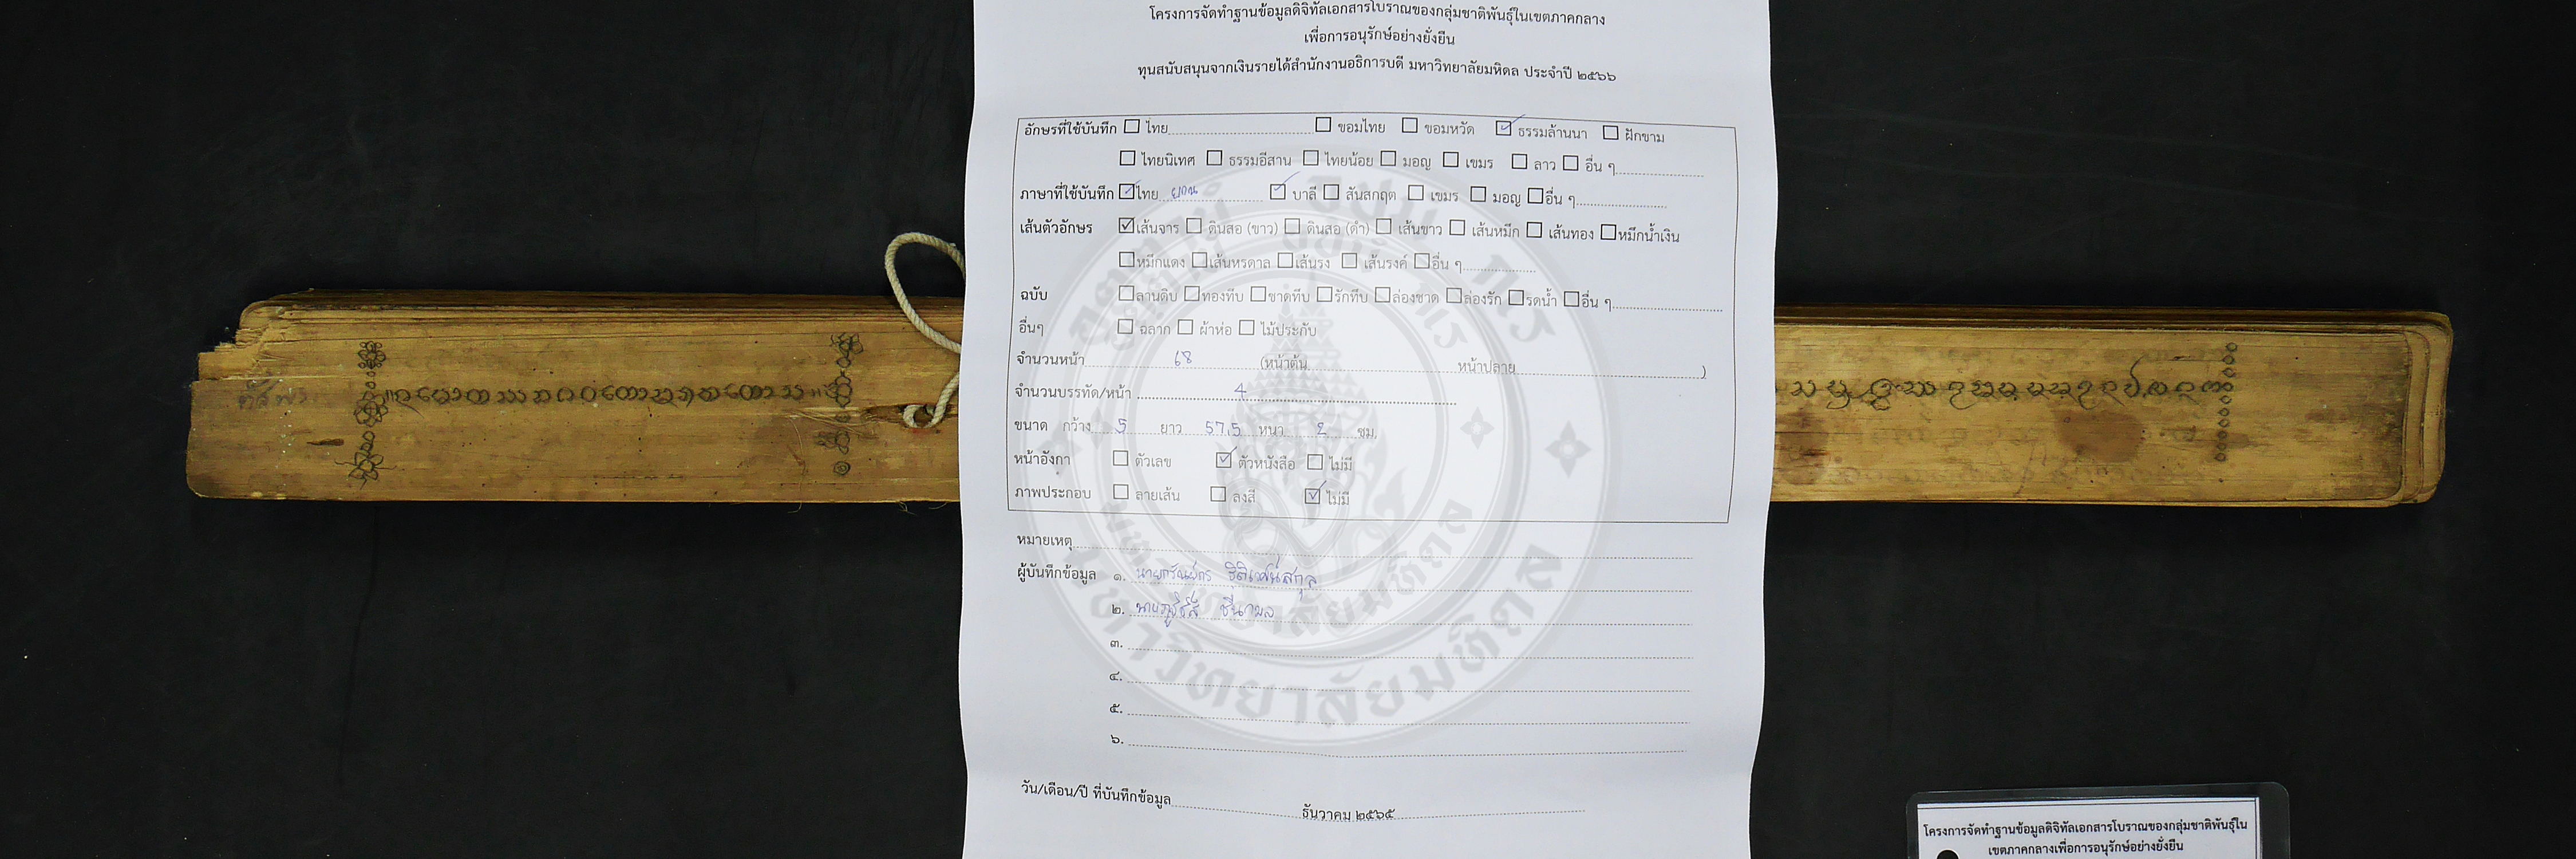 โครงการจัดทำฐานข้อมูลดิจิทัลเอกสารโบราณของกลุ่มชาติพันธุ์ในเขตภาคกลาง
เพื่อการอนุรักษ์อย่างยั่งยืน
ทุนสนับสนุนจากเงินรายได้สำนักงานอธิการบดี มหาวิทยาลัยมหิดล ประจำปี ๒๕๖๖
อักษรที่ใช้บันทึก ไทย ขอมไทย ขอมหวัด ธรรมล้านนา ฝักขาม
ไทยนิเทศ ธรรมอีสาน ไทยน้อย มอญ เขมร ลาว อื่น ๆ
ภาษาที่ใช้บันทึก ไทย ยวน บาลี สันสกฤต เขมร มอญ อื่น ๆ
เส้นตัวอักษร เส้นจาร ดินสอ (ขาว) ดินสอ (ดำ) เส้นขาว เส้นหมึก เส้นทอง หมึกน้ำเงิน
หมึกแดง เส้นหรดาล เส้นรง เส้นรงค์ อื่น ๆ
ฉบับ ลานดิบ ทองทึบ ชาดทึบ รักทึบ ล่องชาด ล่องรัก รดน้ำ อื่น ๆ
อื่นๆ ฉลาก ผ้าห่อ ไม้ประกับ
จำนวนหน้า 68 (หน้าต้น หน้าปลาย )
จำนวนบรรทัด/หน้า 4
ขนาด กว้าง 5 ยาว 57.5 หนา 2 ซม.
หน้าอังกา ตัวเลข ตัวหนังสือ ไม่มี
ภาพประกอบ ลายเส้น ลงสี ไม่มี
หมายเหตุ
ผู้บันทึกข้อมูล ๑.
๒.
๓.
๔.
๕.
๖.
วัน/เดือน/ปี ที่บันทึกข้อมูล ธันวาคม ๒๕๖๕
มหาวิทยาลัยมหิดล
โครงการจัดทำฐานข้อมูลดิจิทัลเอกสารโบราณของกลุ่มชาติพันธุ์ใน
เขตภาคกลางเพื่อการอนุรักษ์อย่างยั่งยืน